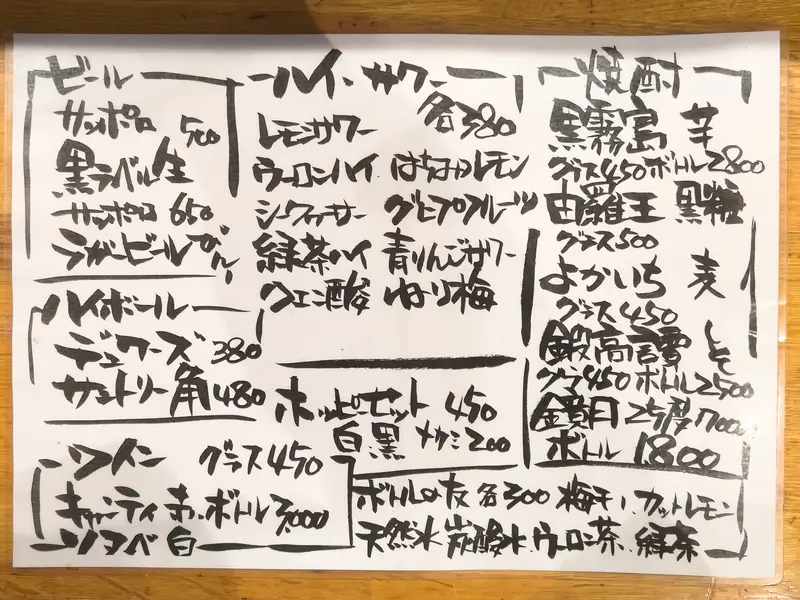 ビール
サッポロ 500
黒ラベル生
サッポロ 650
ラガービールびん
ハイボール
デュワーズ 380
サントリー角 480
ワイン グラス450
キャンティ 赤 ボトル3,000
ソアベ 白
ハイ・サワー
各380
レモンサワー
ウーロンハイ はちみつレモン
シークァーサー グレープフルーツ
緑茶ハイ 青りんごサワー
クエン酸 ねり梅
ホッピーセット 450
白 黒 ナカミ200
焼酎
黒霧島 芋
グラス450 ボトル2800
由羅王 黒糖
グラス500
よかいち 麦
グラス450
鍛高譚 しそ
グラス450 ボトル2500
鏡月 25度 700ml
ボトル 1800
ボトルの友 各300 梅干し カットレモン
天然水 炭酸水 ウーロン茶 緑茶